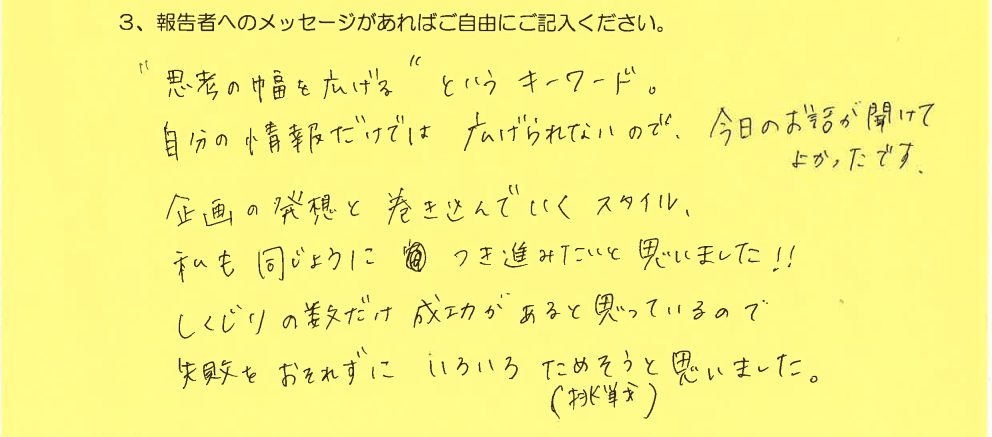 3、報告者へのメッセージがあればご自由にご記入ください。
"思考の幅を広げる" という キーワード。
自分の情報だけでは 広げられないので、今日のお話が聞けて
よかったです。
企画の発想と巻き込んでいくスタイル、
私も同じように つき進みたいと思いました!!
しくじりの数だけ成功があると思っているので
失敗をおそれずに いろいろ ためそうと思いました。
(挑戦)